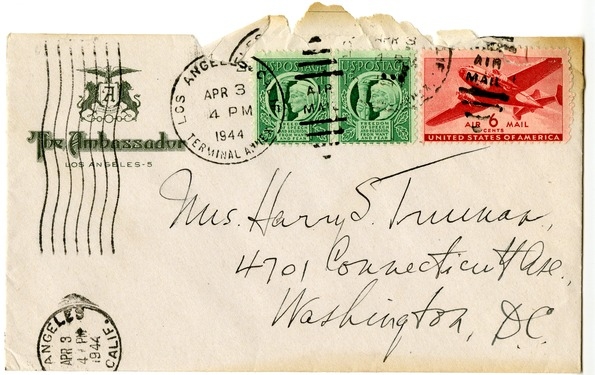 The Ambassador
LOS ANGELES-5
LOS ANGELES
APR 3
4 PM
1944
TERMINAL ANNEX
US POSTAGE
US POSTAGE
AIR
MAIL
APR 3
AIR
MAIL
AIR 6 MAIL
CENTS
UNITED STATES OF AMERICA
Mrs. Harry S. Truman,
4701 Connecticutt Ave.
Washington, D.C.
ANGELES
APR 3
4 PM
1944
CALIF.